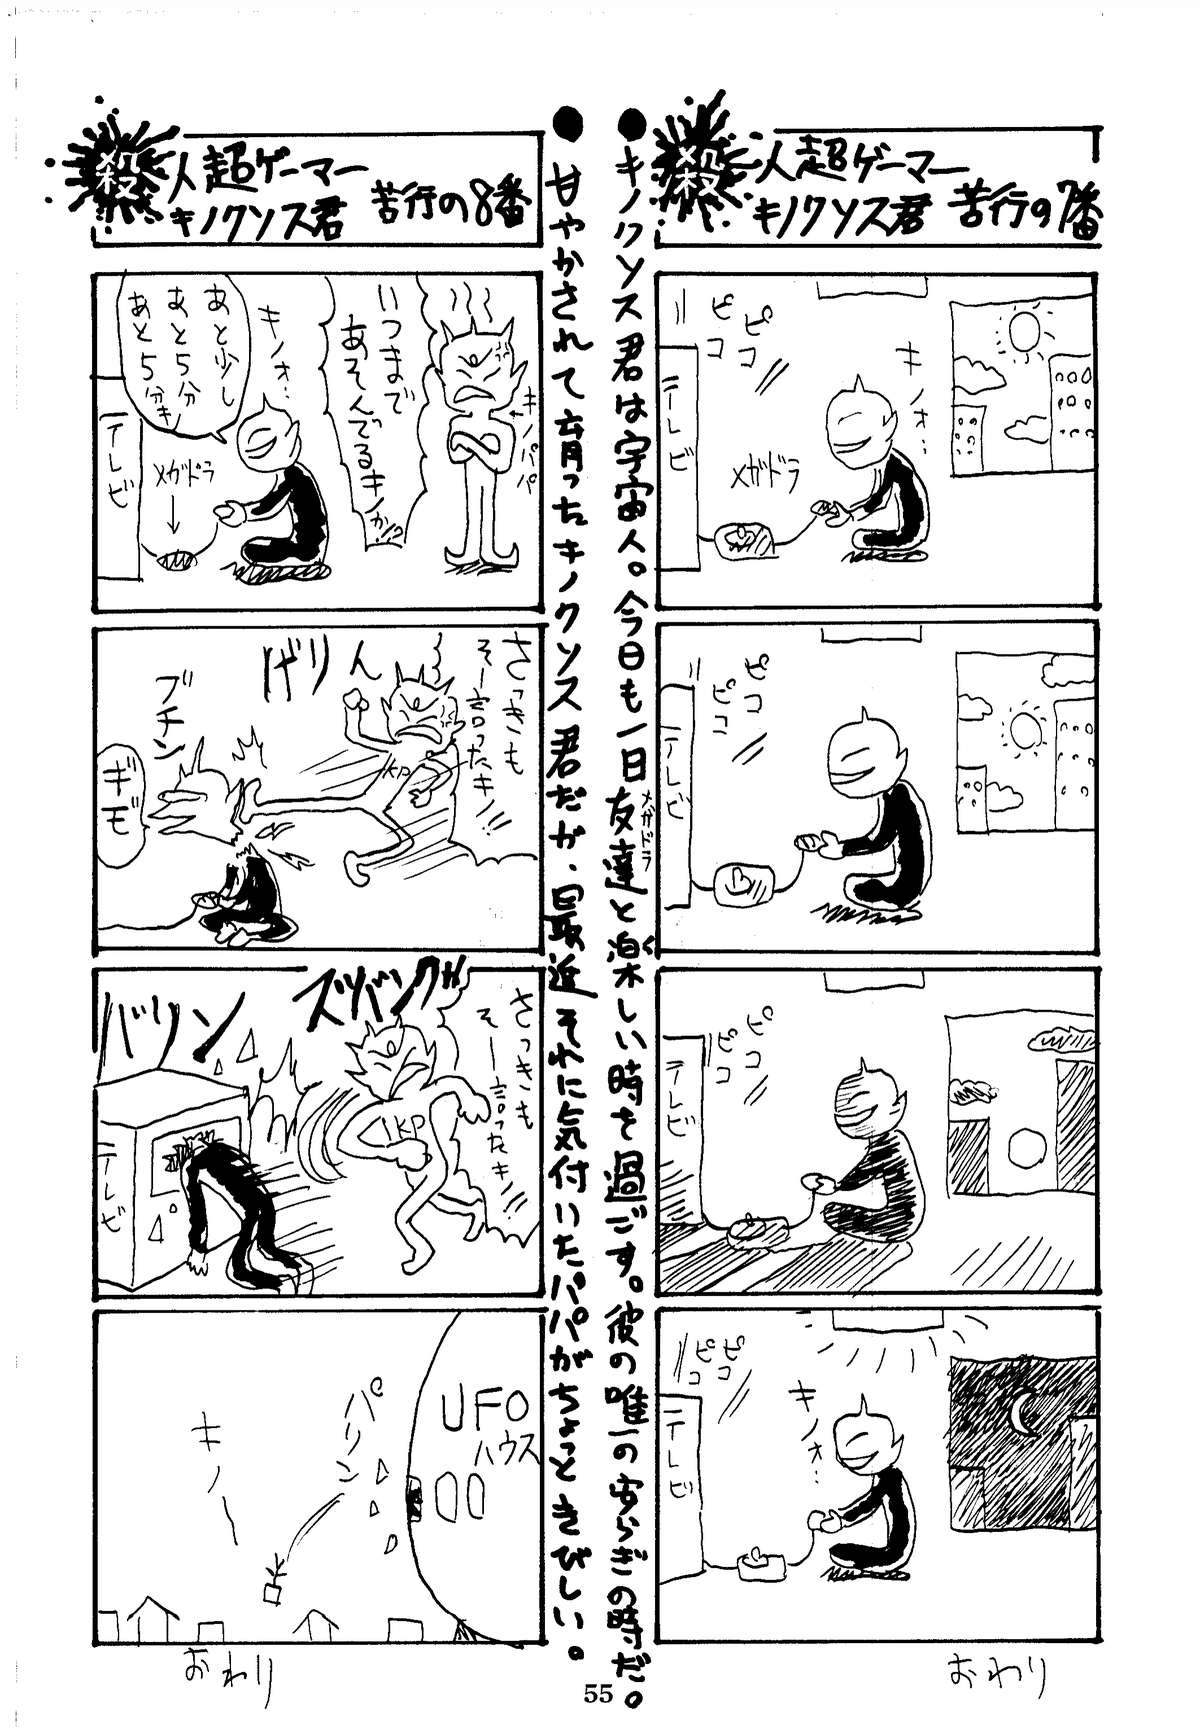 殺人超ゲーマー
キノクソス君 苦行の7番
●キノクソス君は宇宙人。今日も一日友達と楽しい時を過ごす。彼の唯一の安らぎの時だ。
メガドラ
く
ピコ
ピコ
キノォ…
メガドラ
テレビ
ピコ
ピコ
テレビ
ピコ
ピコ
テレビ
ピコ
ピコ
キノォ…
テレビ
おわり
殺人超ゲーマー
キノクソス君 苦行の8番
●甘やかされて育ったキノクソス君だが、最近それに気付いたパパがちょっときびしい。
キノパパ
いつまで
あそんでるキノか!?
キノォ…
あと少し
あと5分
あと5分キノ
メガドラ
テレビ
さっきも
そー言ったキノ!!
げりん
KP
ブチン
ギモ
さっきも
そー言ったキノ!!
ズバンクッ
KP
バリン
テレビ
UFO
ハウス
パリン
キノー
おわり
55